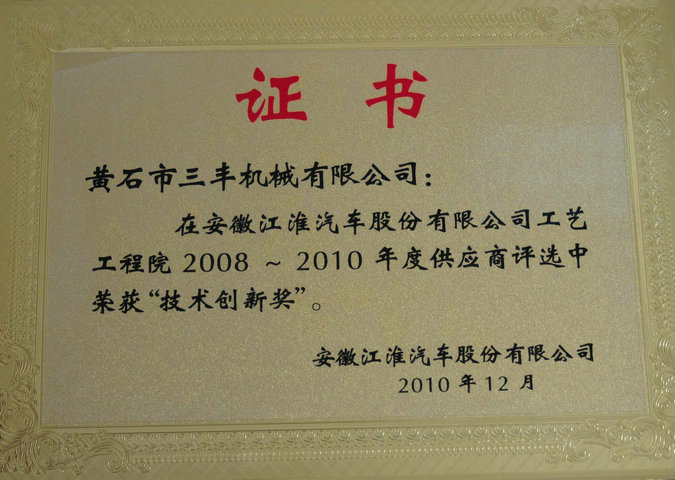 证书
黄石市三丰机械有限公司：
在安徽江淮汽车股份有限公司工艺
工程院 2008 ~ 2010 年度供应商评选中
荣获“技术创新奖”。
安徽江淮汽车股份有限公司
2010 年 12 月